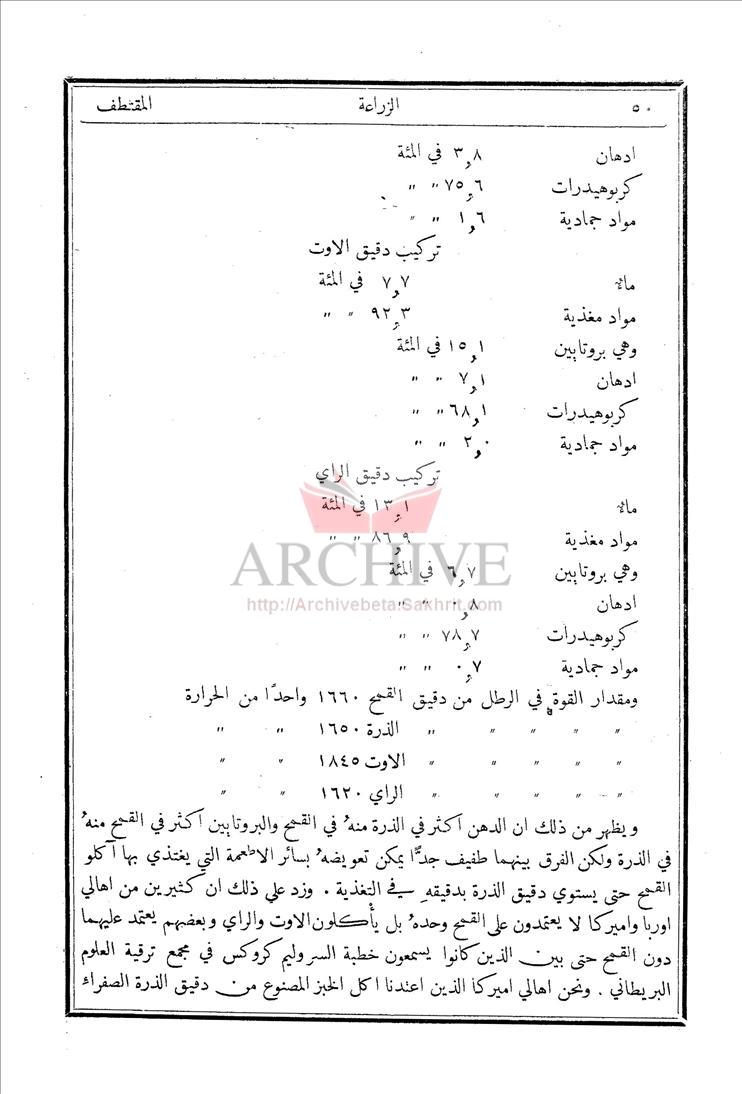 ٥٠ الزراعة المقتطف
ادهان ٣٫٨ في المئة
كربوهيدرات ٧٥٫٦ " "
مواد جمادية ١٫٦ " "
تركيب دقيق الاوت
مائ ٧٫٧ في المئة
مواد مغذية ٩٢٫٣ " "
وهي بروتايين ١٥٫١ في المئة
ادهان ٧٫١ " "
كربوهيدرات ٦٨٫١ " "
مواد جمادية ٢٫٠ " "
تركيب دقيق الراي
مائ ١٣٫١ في المئة
مواد مغذية ٨٦٫٩ " "
ARCHIVE
وهي بروتايين ٦٫٧ في المئة
ادهان ٠٫٨ " "
http://Archivebeta.Sakhrit.com
كربوهيدرات ٧٨٫٧ " "
مواد جمادية ٠٫٧ " "
ومقدار القوة في الرطل من دقيق القمح ١٦٦٠ واحدًا من الحرارة
" " " " " الذرة ١٦٥٠ " "
" " " " " الاوت ١٨٤٥ " "
" " " " " الراي ١٦٢٠ " "
ويظهر من ذلك ان الدهن اكثر في الذرة منهُ في القمح والبروتايين اكثر في القمح منهُ
في الذرة ولكن الفرق بينهما طفيف جدًّا يمكن تعويضهُ بسائر الاطعمة التي يغتذي بها آكلو
القمح حتى يستوي دقيق الذرة بدقيقهِ في التغذية . وزد على ذلك ان كثيرين من اهالي
اوربا واميركا لا يعتمدون على القمح وحدهُ بل يأكلون الاوت والراي وبعضهم يعتمد عليهما
دون القمح حتى بين الذين كانوا يسمعون خطبة السر وليم كروكس في مجمع ترقية العلوم
البريطاني . ونحن اهالي اميركا الذين اعتدنا اكل الخبز المصنوع من دقيق الذرة الصفراء